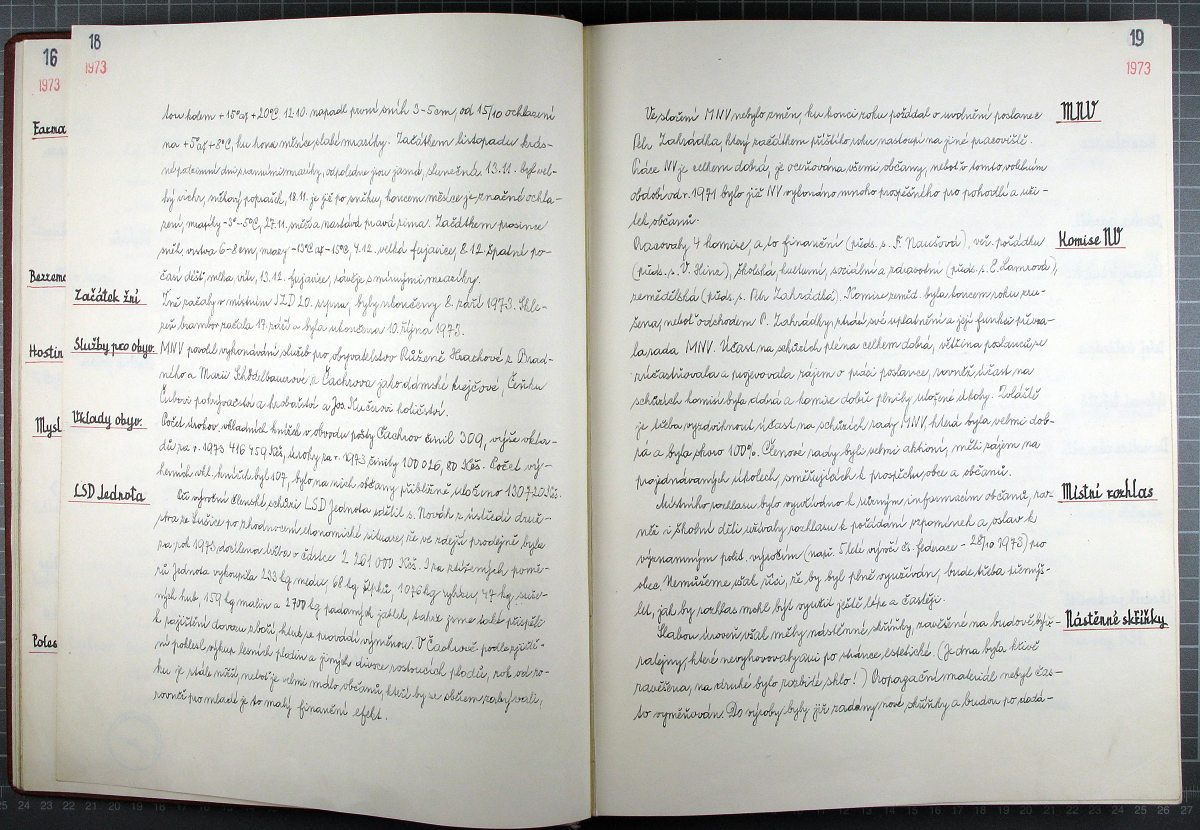 16
1973
Farma
Bezzemc
Hostin
Mysl
Poles
18
1973
tou kolem +15°až +20°C 12.10. napadl první sníh 3-5cm, od 15/10 ochlazení
na +5°až +8°C, ku konci měsíce slabé mrazíky. Začátkem listopadu krás-
né podzimní dny s ranními mrazíky, odpoledne jsou jasná, slunečná 13.11. byl vel-
ký vichr, sněhový poprašek, 18.11. je již po sněhu, koncem měsíce je značné ochla-
zení, mrazíky -3°-5°C, 27.11. sněží a nastává pravá zima. Začátkem prosince
sníh, vrstva 6-8cm, mrazy -13°C až -15°C 4.12. velká fujavice, 8.12. špatné po-
časí déšť, mlha, vítr, 13.12. fujavice, závěje s mírnými mrazíky.
Začátek žní
Žně začaly v místním JZD 20. srpna, byly ukončeny 8. září 1973. Skli-
zeň brambor začala 17. září a byla ukončena 10. října 1973.
Služby pro obyv.
MNV povolil vykonávání služeb pro obyvatelstvo Růženě Hrachové z Brad-
ného a Marii Schödelbauerové z Čachrova jako dámské krejčové, Čeňku
Čubovi pokrývačství a hrobařství a Jos. Kučerovi holičství.
Vklady obyv.
Počet úrokov. vkladních knížek v obvodu pošty Čachrov činil 309, výše vkla-
dů za r. 1973 416 759 Kčs, úroky za r. 1973 činily 100 026,80 Kčs. Počet vý-
herních vkl. knížek byl 107, bylo na nich občany přibližně uloženo 130 720 Kčs.
LSD Jednota
Na výroční členské schůzi LSD Jednota sdělil s. Novák z ústředí druž-
stva ze Sušice po zhodnocení ekonomické situace, že ve zdejší prodejně byla
za rok 1973 docílena tržba v částce 2 261 000 Kčs. I za ztížených pomě-
rů Jednota vykoupila 233 kg medu, 68 kg šípků, 1076 kg rybízu, 47 kg suše-
ných hub, 159 kg malin a 2700 kg padaných jablek, takže jsme také přispěli
k zajištění dovozu zboží, který se provádí výměnou. V Čachrově podle zjiště-
ní poklesl výkup lesních plodin a jiných divoce rostoucích plodů, rok od ro-
ku je stále nižší, neboť je velmi málo občanů, kteří by se sběrem zabývali,
rovněž pro mladé je to malý finanční efekt.
19
1973
MNV
Ve složení MNV nebylo změn, ku konci roku požádal o uvolnění poslanec
Petr Zahrádka, který začátkem příštího roku nastoupí na jiné pracoviště.
Práce NV je celkem dobrá, je oceňována všemi občany, neboť v tomto volebním
období od r. 1971 bylo již NV vykonáno mnoho prospěšného pro pohodlí a uži-
tek občanů.
Komise NV
Pracovaly 4 komise a to finanční (předs. s. F. Naušová), veř. pořádku
(předs. s. V. Heinz), školská, kulturní, sociální a zdravotní (předs. s. E. Lamzová),
zemědělská (předs. s. Petr Zahrádka). Komise zeměd. byla koncem roku zru-
šena, neboť odchodem P. Zahrádky, ztrácí své uplatnění a její funkci převza-
la rada MNV. Účast na schůzích pléna celkem dobrá, většina poslanců se
zúčastňovala a projevovala zájem o práci poslance, rovněž účast na
schůzích komisí byla dobrá a komise dobře plnily uložené úkoly. Zvláště
je třeba vyzdvihnout účast na schůzích rady MNV, která byla velmi dob-
rá a byla skoro 100%. Členové rady byli velmi aktivní, měli zájem na
projednávaných úkolech, směřujících k prospěchu obce a občanů.
Místní rozhlas
Místního rozhlasu bylo využíváno k různým informacím občanů, rov-
něž i školní děti užívaly rozhlasu k pořádání vzpomínek a oslav k
významným polit. výročím (např. 5 leté výročí čs. federace - 28/10 1973) pro
obec. Nemůžeme však říci, že by byl plně využíván, bude třeba přemýš-
let, jak by rozhlas mohl být využit ještě lépe a častěji.
Nástěnné skříňky
Slabou úroveň však měly nástěnné skříňky, zavěšené na budově bývalé
ratejny, které nevyhovovaly ani po stránce estetické. (Jedna byla křivě
zavěšena, na druhé bylo rozbité sklo!) Propagační materiál nebyl čas-
to vyměňován. Do výroby byly již zadány nové skříňky a budou po dodá-